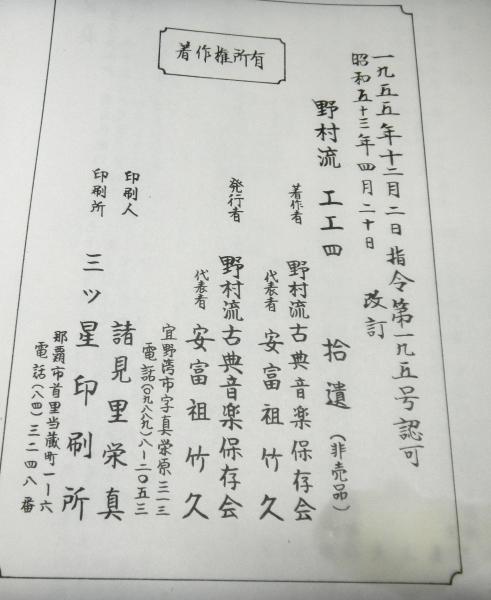 著作権所有
一九五五年十二月二日指令第一九五号認可
昭和五十三年四月二十日 改訂
野村流 工工四 拾遺 (非売品)
著作者 野村流古典音楽保存会
代表者 安富祖竹久
発行者 野村流古典音楽保存会
代表者 安富祖竹久
宜野湾市字真栄原三一三
電話(〇九八八九)八-二〇五三
印刷人 諸見里栄真
印刷所 三ツ星印刷所
那覇市首里当蔵町一-六
電話(八四)三二四八番